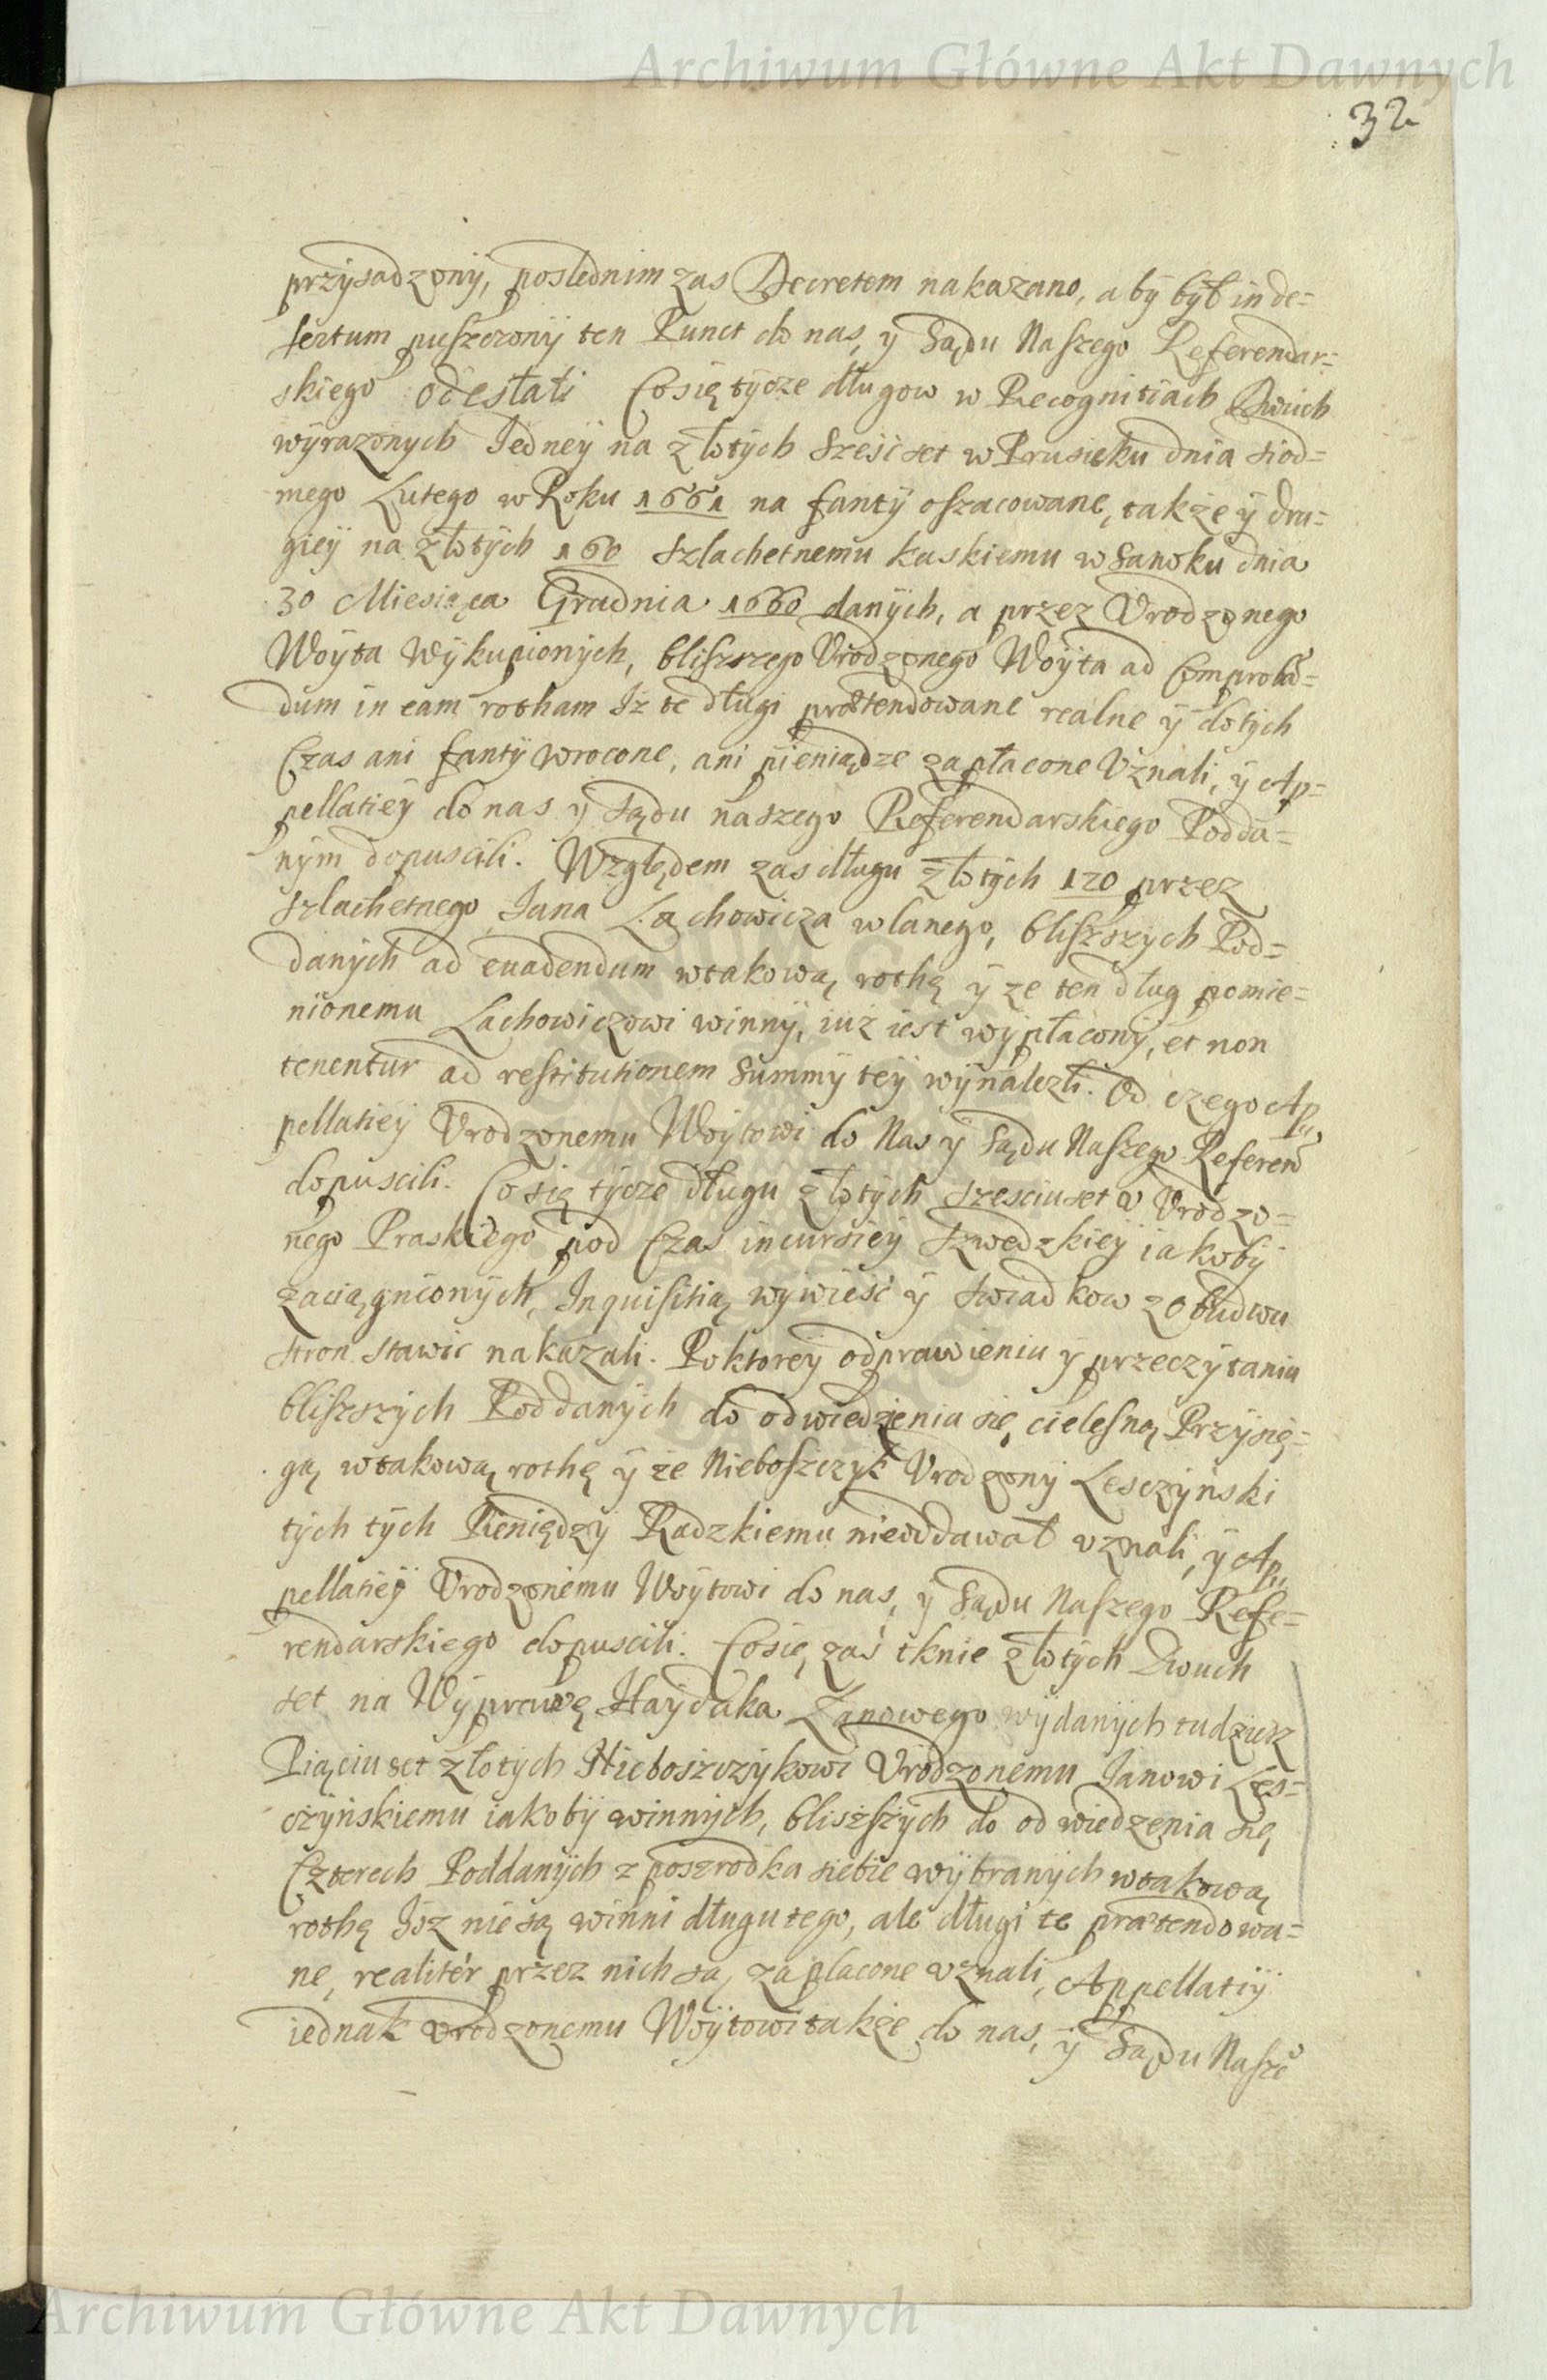 Archiwum Główne Akt Dawnych
32
przysadzony, poslednim zas Decretem nakazano, aby był in de=
sertum puszczony ten Punct do nas, y Sądu Naszego Referendar=
skiego odesłali Co się tycze długow w Recognitiach Dwuch
wyrazonych Jedney na złotych Sześćset w Prusieku dnia siod=
mego Lutego w Roku 1661 na fanty oszacowane, także y dru=
giey na złotych 160 szlachetnemu kaskiemu w Sanoku dnia
30 Miesiąca Grudnia 1660 danych, a przez Vrodzonego
Woyta wykupionych, bliszszego Vrodzonego Woyta ad Comproban=
dum in eam rotham Iż te długi prætendowane realne y do tych
Czas ani fanty wrocone, ani pieniądze zapłacone Vznali, y Ap=
pellatiey do nas y sądu naszego Referendarskiego Podda=
nym dopuscili. Względem zas długu złotych 120 przez
szlachetnego Jana Lachowicza wlanego, bliszszych Pod=
danych ad euadendum w takową rothę y ze ten dług pomie=
nionemu Lachowiczowi winny, iuż iest wypłacony, et non
tenentur ad restitutionem Summy tey wynalezli. Od czego Ap=
pellatiey Vrodzonemu Woytowi do Nas y Sądu Naszego Referen
dopuscili. Co się tycze długu złotych szesciuset v Vrodzo=
nego Praskiego pod Czas incursiey Szwedzkiey iakoby
zaciągnionych, Inquisitią wywieść y swiadkow z obudwu
stron stawic nakazali. Po ktorey odprawieniu y przeczytaniu
bliszszych Poddanych do odwiedzienia się cielesną Przysię=
gą w takową rothę y że Nieboszczyk Vrodzony Lesczyński
tych tych Pieniędzy Radzkiemu nieoddawał vznali, y Ap=
pellatiey Vrodzonemu Woytowi do nas, y Sądu Naszego Refe=
rendarskiego dopuscili. Co się zaś tknie złotych Dwuch
set na Wyprawę Hayduka Łanowego wydanych tudziesz
Piąciuset złotych Nieboszczykowi Vrodzonemu Janowi Les=
czyńskiemu iakoby winnych, bliższych do odwiedzenia się
Czterech Poddanych z poszrodka siebie wybranych w takową
rothę Isz nie są winni długu tego, ale długi te prætendowa=
ne, realiter przez nich są zaplacone vznali, Appellatiy
iednak vrodzonemu Woytowi także do nas, y Sądu Nasze
Archiwum Główne Akt Dawnych